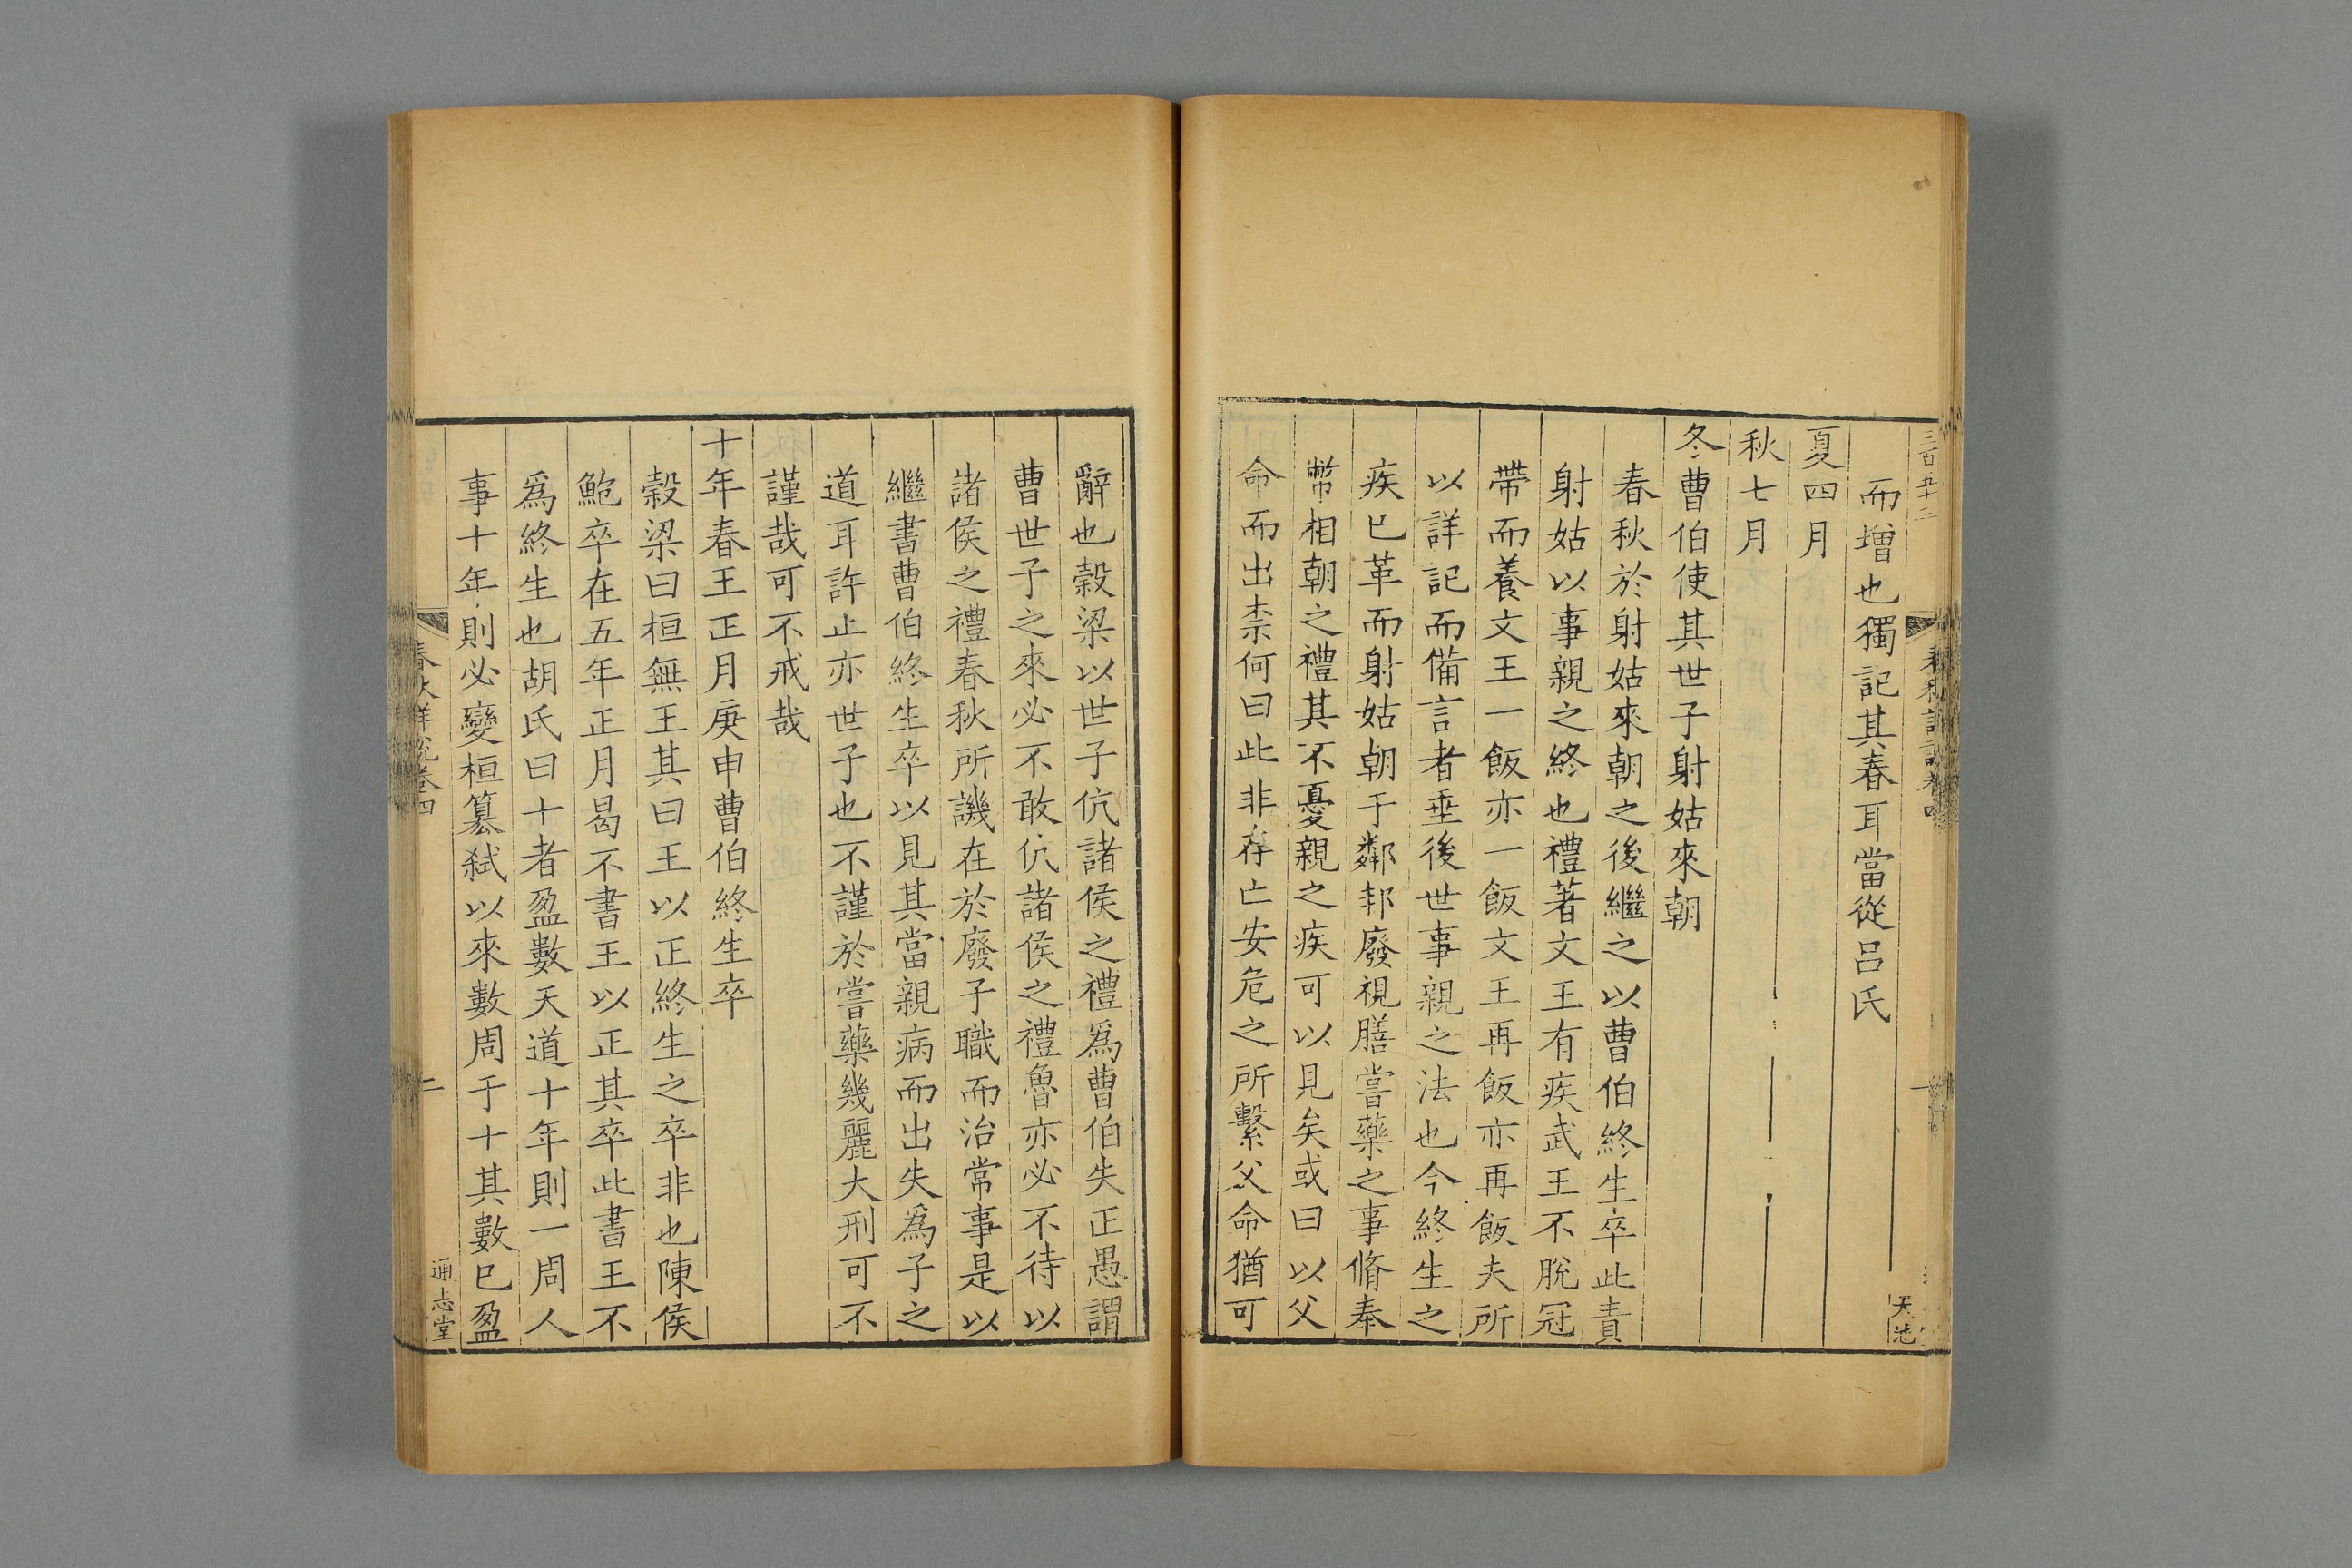 而增也獨記其春耳當從呂氏
夏四月
秋七月
冬曹伯使其世子射姑來朝
春秋於射姑來朝之後繼之以曹伯終生卒此責
射姑以事親之終也禮著文王有疾武王不脫冠
帶而養文王一飯亦一飯文王再飯亦再飯夫所
以詳記而備言者垂後世事親之法也今終生之
疾已革而射姑朝于鄰邦廢視膳嘗藥之事脩奉
幣相朝之禮其不憂親之疾可以見矣或曰以父
命而出柰何曰此非存亡安危之所繫父命猶可
辭也榖梁以世子伉諸侯之禮爲曹伯失正愚謂
曹世子之來必不敢伉諸侯之禮魯亦必不待以
諸侯之禮春秋所譏在於廢子職而治常事是以
繼書曹伯終生卒以見其當親病而出失爲子之
道耳許止亦世子也不謹於嘗藥幾麗大刑可不
謹哉可不戒哉
十年春王正月庚申曹伯終生卒
榖梁曰桓無王其曰王以正終生之卒非也陳侯
鮑卒在五年正月曷不書王以正其卒此書王不
爲終生也胡氏曰十者盈數天道十年則一周人
事十年則必變桓篡弑以來數周于十其數已盈
春秋詳說卷四
二
通志堂